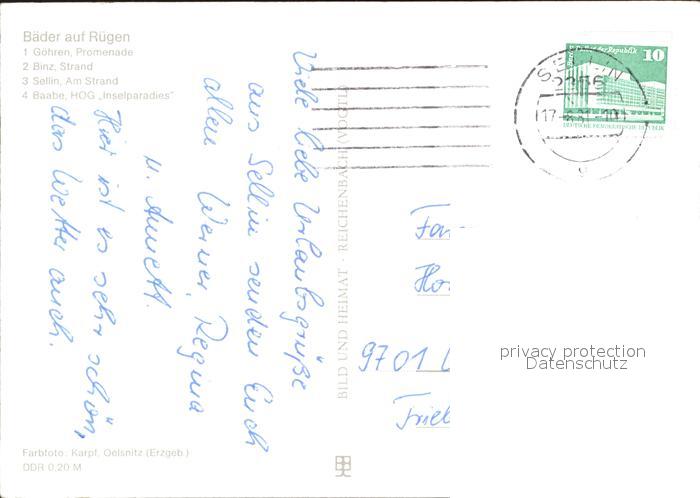 Bäder auf Rügen
1 Göhren, Promenade
2 Binz, Strand
3 Sellin, Am Strand
4 Baabe, HOG „Inselparadies"
Viele liebe Urlaubsgrüße
aus Sellin senden Euch
allen Werner, Regina
u. Annett.
Hier ist es sehr schön,
das Wetter auch.
Farbfoto: Karpf, Oelsnitz (Erzgeb.)
DDR 0,20 M
BILD UND HEIMAT · REICHENBACH (VOGTL)
10
DEUTSCHE DEMOKRATISCHE REPUBLIK
SELLIN
2356
Fam
9701
privacy protection
Datenschutz